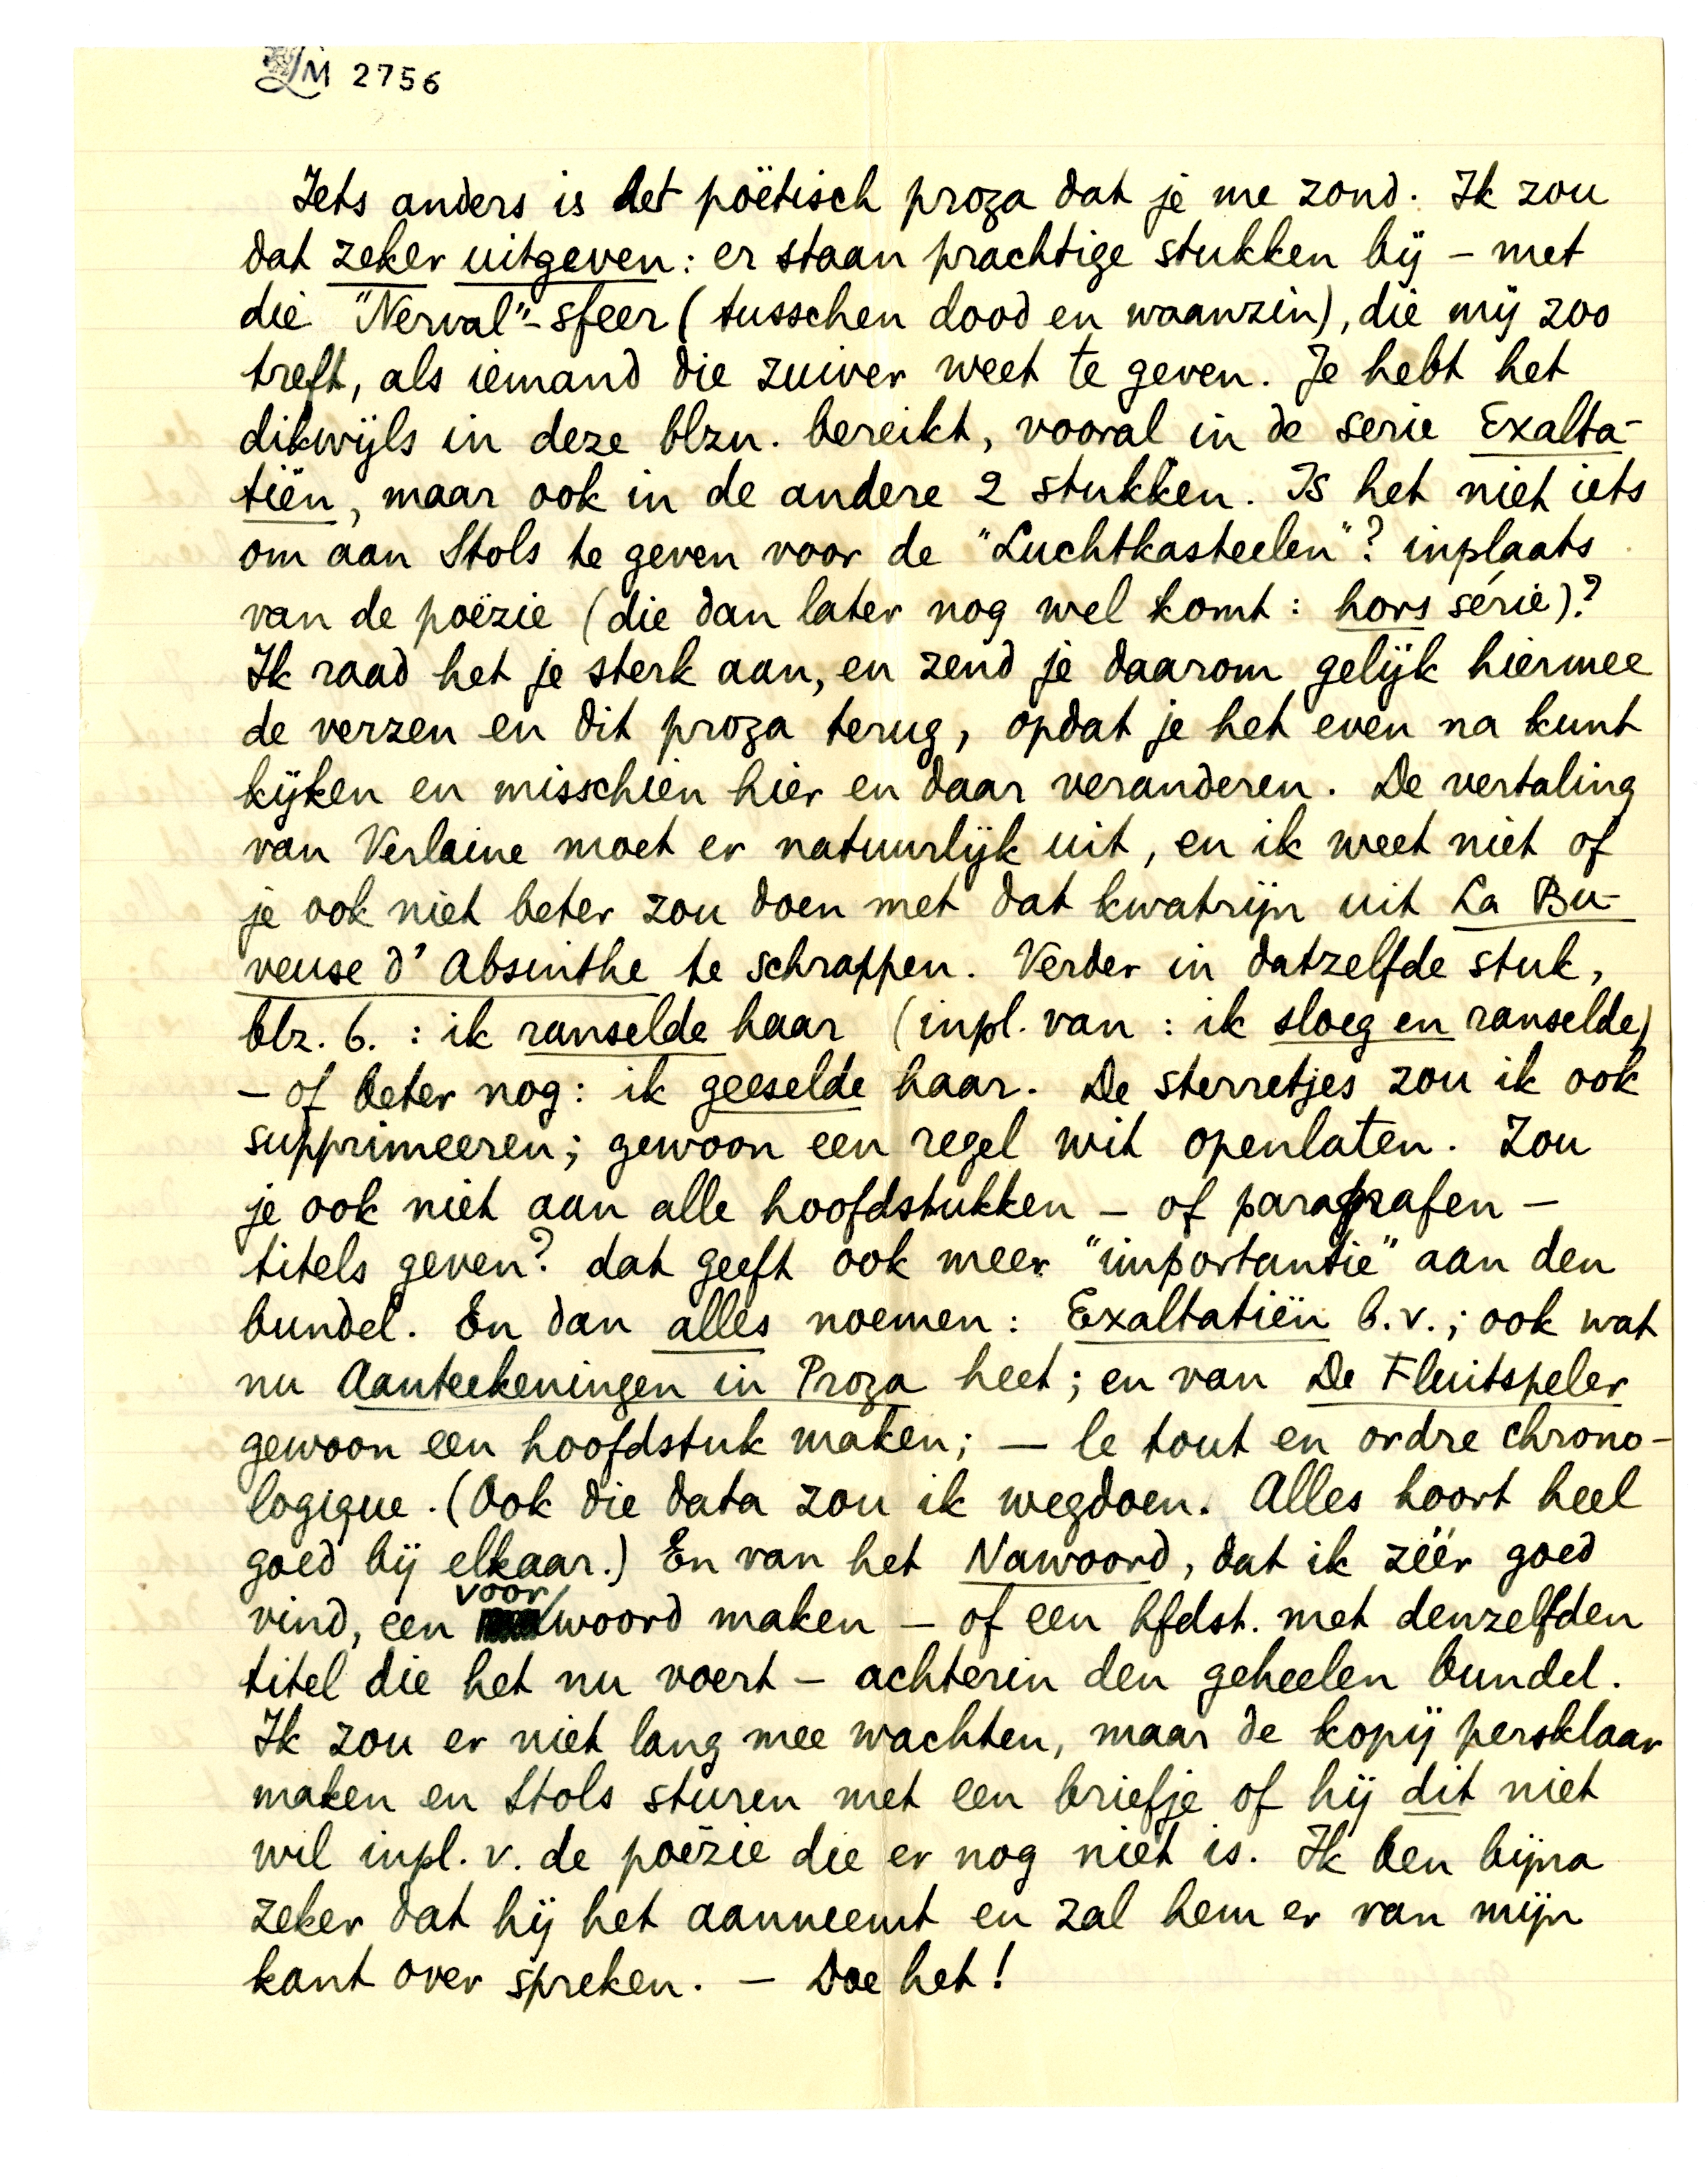 LM 2756
Iets anders is het poëtisch proza dat je me zond. Ik zou
dat zeker uitgeven: er staan prachtige stukken bij – met
die "Nerval"-sfeer (tusschen dood en waanzin), die mij zoo
treft, als iemand die zuiver weet te geven. Je hebt het
dikwijls in deze blzn. bereikt, vooral in de serie Exalta-
tiën, maar ook in de andere 2 stukken. Is het niet iets
om aan Stols te geven voor de "Luchtkasteelen"? inplaats
van de poëzie (die dan later nog wel komt: hors série)?
Ik raad het je sterk aan, en zend je daarom gelijk hiermee
de verzen en dit proza terug, opdat je het even na kunt
kijken en misschien hier en daar veranderen. De vertaling
van Verlaine moet er natuurlijk uit, en ik weet niet of
je ook niet beter zou doen met dat kwatrijn uit La Bu-
veuse d'Absinthe te schrappen. Verder in datzelfde stuk,
blz. 6. : ik ranselde haar (inpl. van : ik sloeg en ranselde)
– of beter nog: ik geeselde haar. De sterretjes zou ik ook
supprimeeren; gewoon een regel wit openlaten. Zou
je ook niet aan alle hoofdstukken – of paragrafen –
titels geven? dat geeft ook meer "importantie" aan den
bundel. En dan alles noemen: Exaltatiën b.v.; ook wat
nu Aanteekeningen in Proza heet; en van De Fluitspeler
gewoon een hoofdstuk maken; — le tout en ordre chrono-
logique. (Ook die data zou ik wegdoen. Alles hoort heel
goed bij elkaar.) En van het Nawoord, dat ik zéér goed
vind, een voorwoord maken – of een hfdst. met denzelfden
titel die het nu voert – achterin den geheelen bundel.
Ik zou er niet lang mee wachten, maar de kopij persklaar
maken en Stols sturen met een briefje of hij dit niet
wil inpl. v. de poëzie die er nog niet is. Ik ben bijna
zeker dat hij het aanneemt en zal hem er van mijn
kant over spreken. — Doe het!